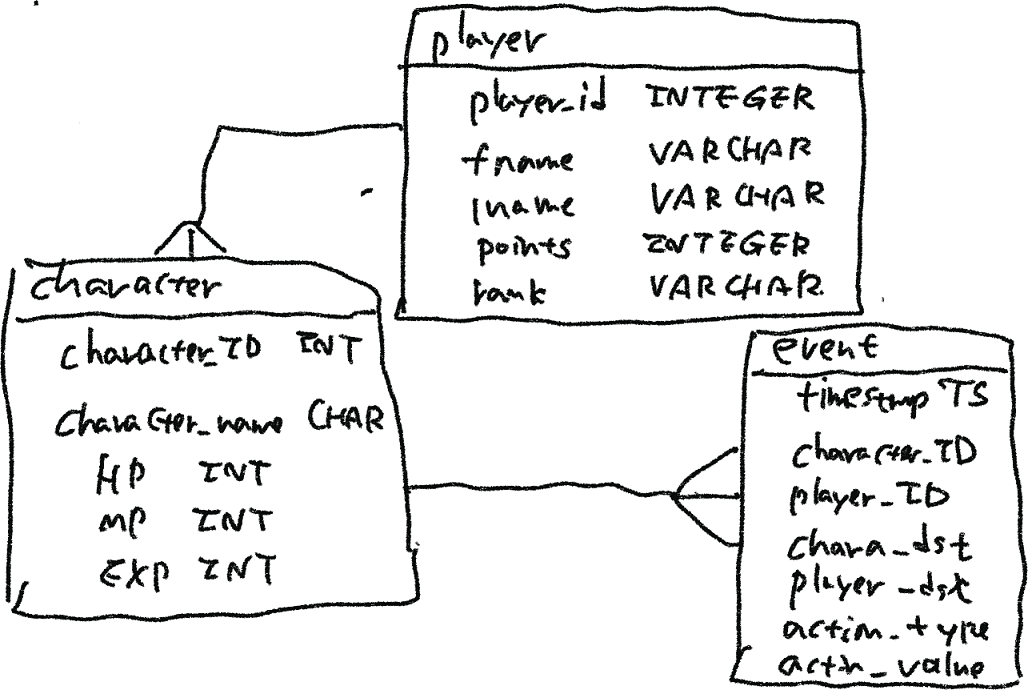 player
player_id INTEGER
fname VARCHAR
lname VARCHAR
points INTEGER
rank VARCHAR
character
character_ID INT
character_name CHAR
HP INT
MP INT
EXP INT
event
timestmp TS
character_ID
player_ID
chara_dst
player_dst
action_type
actin_value